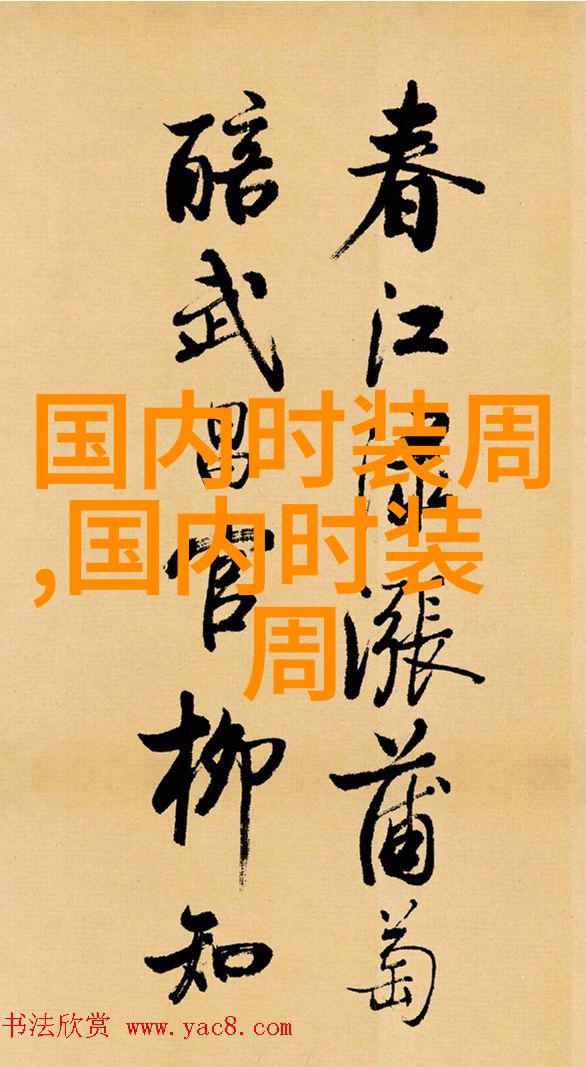 春江漲蒲萄
醅武昌官柳知
国内时装周
,国内时装
周
书法欣赏 www.yac8.com